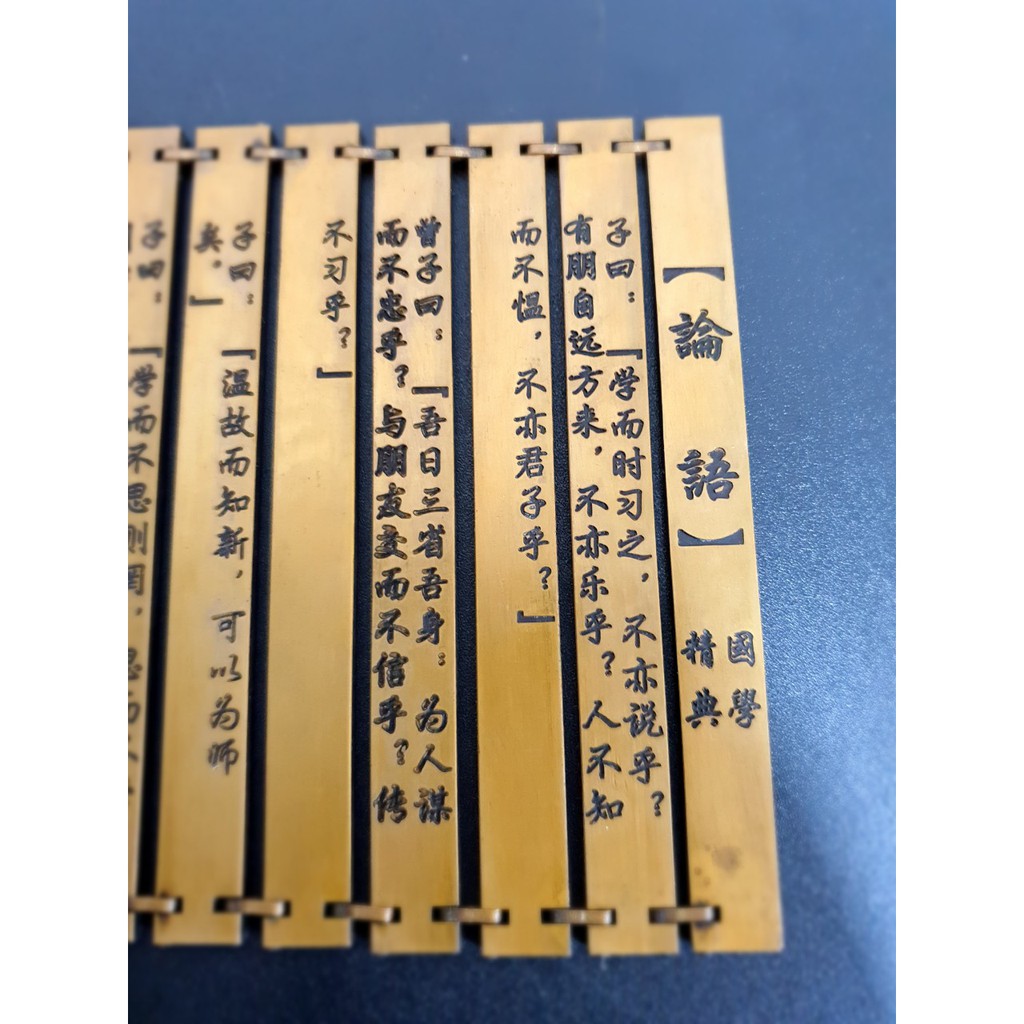 【論語】
國學
精典
子曰：『学而时习之，不亦说乎？
有朋自远方来，不亦乐乎？人不知
而不愠，不亦君子乎？』
曾子曰：『吾日三省吾身：为人谋
而不忠乎？与朋友交而不信乎？传
不习乎？』
子曰：『温故而知新，可以为师
矣。』
子曰：『学而不思则罔，思而不